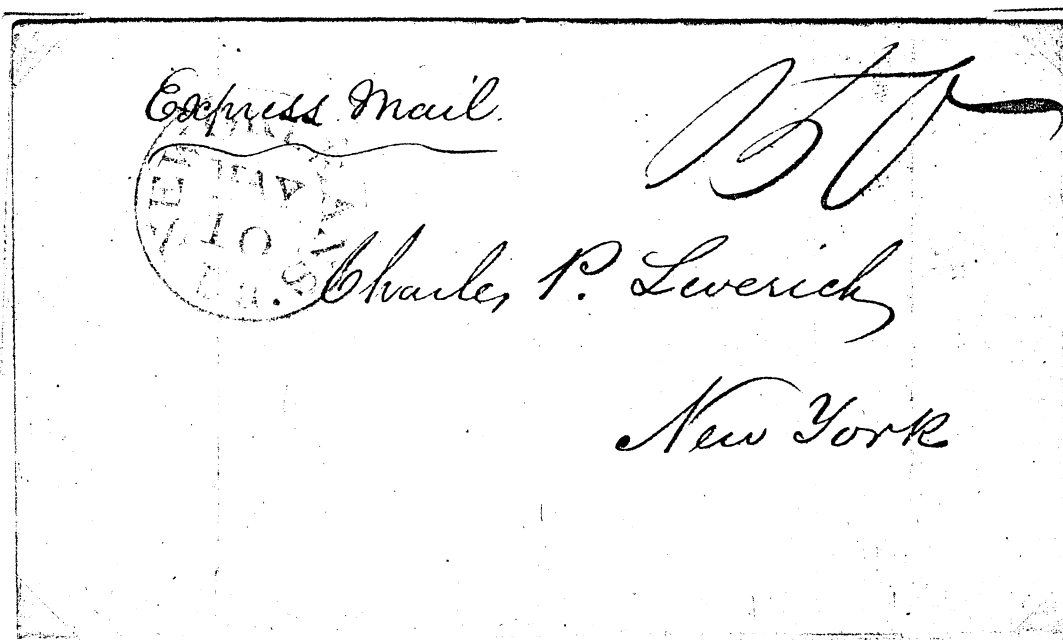 Express Mail.
150
Charles P. Leverich
New York